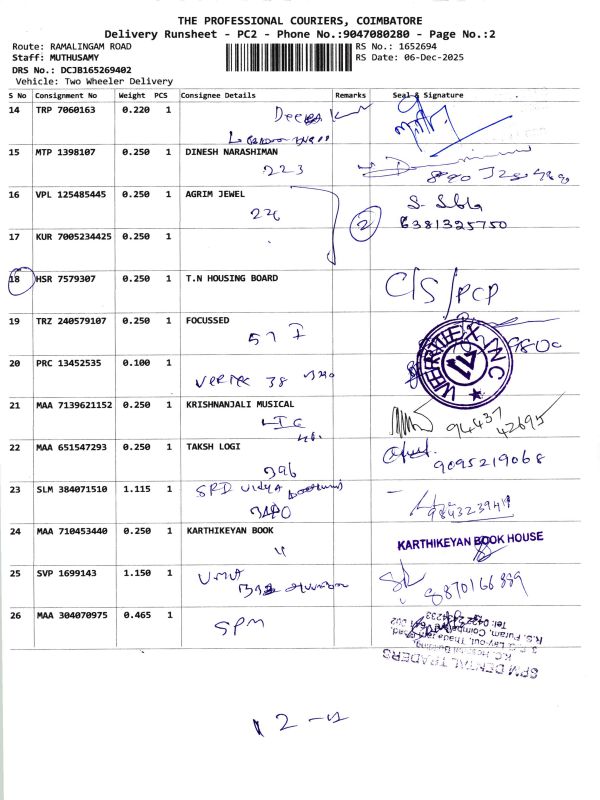 THE PROFESSIONAL COURIERS, COIMBATORE
Delivery Runsheet - PC2 - Phone No.:9047080280 - Page No.:2
Route: RAMALINGAM ROAD RS No.: 1652694
Staff: MUTHUSAMY RS Date: 06-Dec-2025
DRS No.: DCJB165269402
Vehicle: Two Wheeler Delivery
S No Consignment No Weight PCS Consignee Details Remarks Seal & Signature
14 TRP 7060163 0.220 1
15 MTP 1398107 0.250 1 DINESH NARASHIMAN
223
16 VPL 125485445 0.250 1 AGRIM JEWEL
226 2 6381325750
17 KUR 7005234425 0.250 1
18 HSR 7579307 0.250 1 T.N HOUSING BOARD C/S/PCP
19 TRZ 240579107 0.250 1 FOCUSSED
57 I
VEERTEX INC
20 PRC 13452535 0.100 1
VERTEX 38
21 MAA 7139621152 0.250 1 KRISHNANJALI MUSICAL
LIC 94437 42695
22 MAA 651547293 0.250 1 TAKSH LOGI
396 9095219068
23 SLM 384071510 1.115 1 SRI VIDYA
24 MAA 710453440 0.250 1 KARTHIKEYAN BOOK KARTHIKEYAN BOOK HOUSE
4
25 SVP 1699143 1.150 1 UMA
8870166889
26 MAA 304070975 0.465 1 SPM
SPM DENTAL TRADERS
R.S. Puram, Coimbatore
12-4